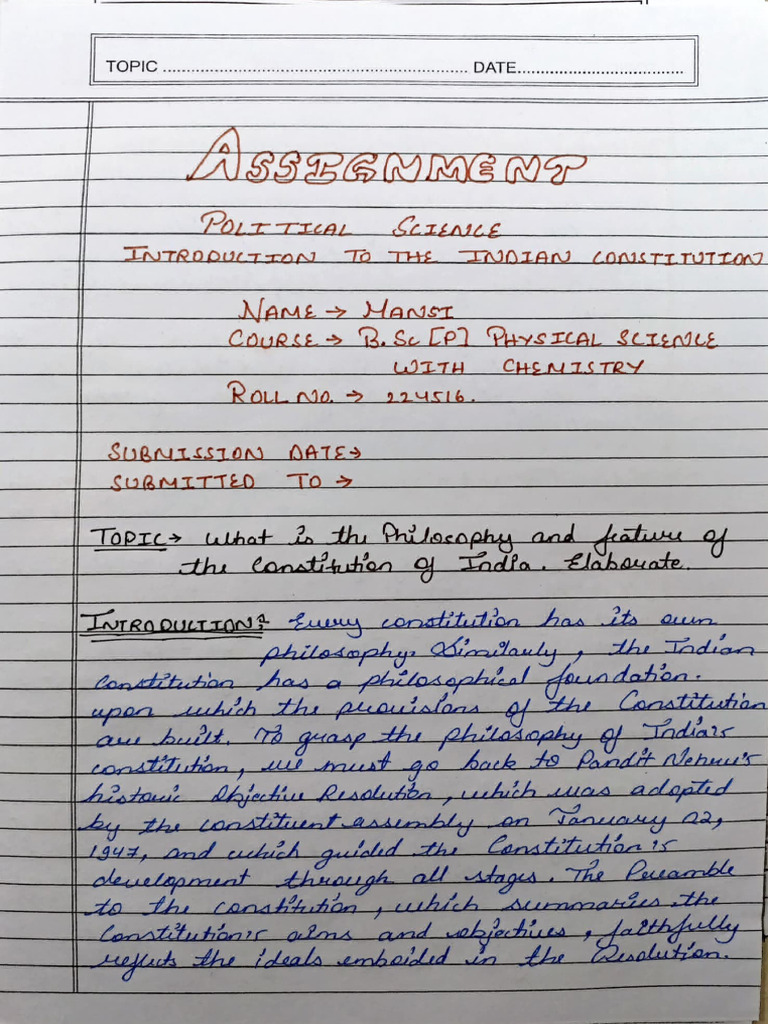 TOPIC ........................................................ DATE..................................
ASSIGNMENT
POLITICAL SCIENCE
INTRODUCTION TO THE INDIAN CONSTITUTION
NAME → MANSI
COURSE → B.SC [P] PHYSICAL SCIENCE
WITH CHEMISTRY
ROLL NO. → 224516.
SUBMISSION DATE →
SUBMITTED TO →
TOPIC → What is the Philosophy and feature of
the Constitution of India. Elaborate.
INTRODUCTION: Every constitution has its own
philosophy. Similarly, the Indian
Constitution has a philosophical foundation.
upon which the provisions of the Constitution
are built. To grasp the philosophy of India's
constitution, we must go back to Pandit Nehru's
historic Objective Resolution, which was adopted
by the constituent assembly on January 22,
1947, and which guided the Constitution's
development through all stages. The Preamble
to the constitution, which summaries the
Constitution's aims and objectives, faithfully
reflects the ideals emboided in the Resolution.